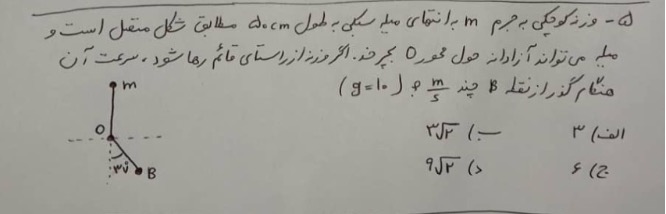 ۵- وزنه کوچکی به جرم m به انتهای میله سبکی به طول ۵۰cm مطابق شکل متصل است و
میله می تواند آزادانه حول محور O بچرخد. اگر وزنه از راستای قائم رها شود، سرعت آن
هنگام گذر از نقطه B چند m/s ؟ (g=۱۰)
الف) ۳ ب) ۳√۲
ج) ۶ د) ۹√۲
m
O
۳۷° B